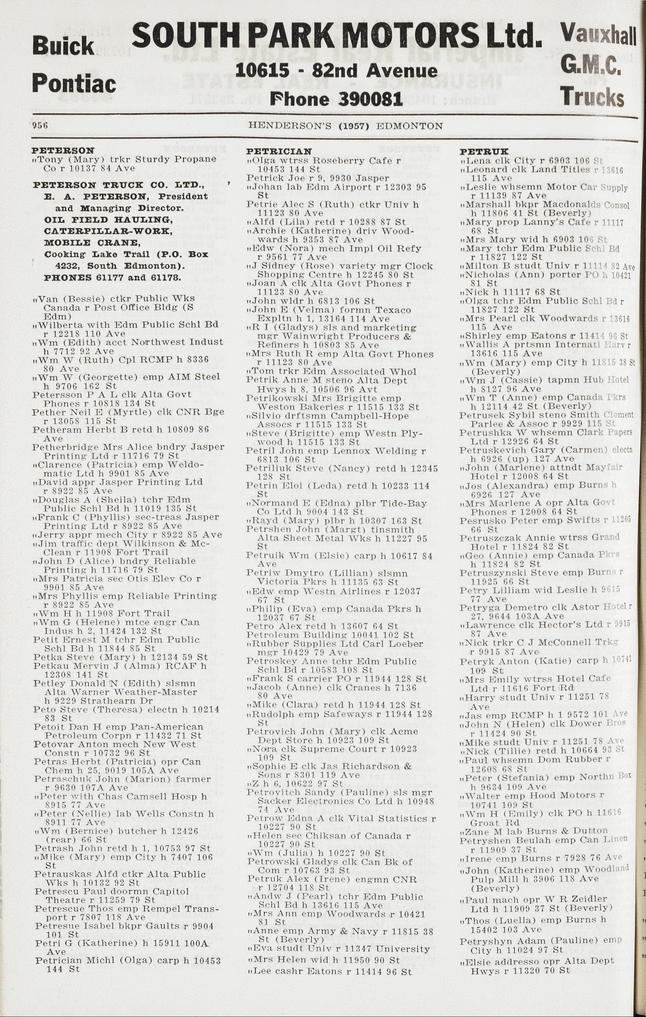 Buick
Pontiac
SOUTH PARK MOTORS Ltd.
10615 - 82nd Avenue
Phone 390081
Vauxhall
G.M.C.
Trucks
956
HENDERSON'S (1957) EDMONTON
PETERSON
„Tony (Mary) trkr Sturdy Propane
Co r 10137 84 Ave
PETERSON TRUCK CO. LTD.,
E. A. PETERSON, President
and Managing Director.
OIL FIELD HAULING,
CATERPILLAR-WORK,
MOBILE CRANE,
Cooking Lake Trail (P.O. Box
4232, South Edmonton).
PHONES 61177 and 61178.
„Van (Bessie) ctkr Public Wks
Canada r Post Office Bldg (S
Edm)
„Wilberta with Edm Public Schl Bd
r 12218 110 Ave
„Wm (Edith) acct Northwest Indust
h 7712 92 Ave
„Wm W (Ruth) Cpl RCMP h 8336
80 Ave
„Wm W (Georgette) emp AIM Steel
h 9706 162 St
Petersson P A L clk Alta Govt
Phones r 10818 134 St
Pether Neil E (Myrtle) clk CNR Bge
r 13058 115 St
Petheram Herbt B retd h 10809 86
Ave
Petherbridge Mrs Alice bndry Jasper
Printing Ltd r 11716 79 St
„Clarence (Patricia) emp Weldo-
matic Ltd h 9901 85 Ave
„David appr Jasper Printing Ltd
r 8922 85 Ave
„Douglas A (Sheila) tchr Edm
Public Schl Bd h 11019 135 St
„Frank C (Phyllis) sec-treas Jasper
Printing Ltd r 8922 85 Ave
„Jerry appr mech City r 8922 85 Ave
„Jim traffic dept Wilkinson & Mc-
Clean r 11908 Fort Trail
„John D (Alice) bndry Reliable
Printing h 11716 79 St
„Mrs Patricia sec Otis Elev Co r
9901 85 Ave
„Mrs Phyllis emp Reliable Printing
r 8922 85 Ave
„Wm H h 11908 Fort Trail
„Wm G (Helene) mtce engr Can
Indus h 2, 11424 132 St
Petit Ernest M tchr Edm Public
Schl Bd h 11844 85 St
Petka Steve (Mary) h 12134 59 St
Petkau Mervin J (Alma) RCAF h
12308 141 St
Petley Donald N (Edith) slsmn
Alta Warner Weather-Master
h 9229 Strathearn Dr
Peto Steve (Theresa) electn h 10214
83 St
Petoit Dan H emp Pan-American
Petroleum Corpn r 11432 71 St
Petovar Anton mech New West
Constn r 10732 96 St
Petras Herbt (Patricia) opr Can
Chem h 25, 9019 105A Ave
Petraschuk John (Marion) farmer
r 9630 107A Ave
„Peter with Chas Camsell Hosp h
8915 77 Ave
„Peter (Nellie) lab Wells Constn h
8911 77 Ave
„Wm (Bernice) butcher h 12426
(rear) 66 St
Petrash John retd h 1, 10753 97 St
„Mike (Mary) emp City h 7407 106
St
Petrauskas Alfd ctkr Alta Public
Wks h 10132 92 St
Petrescu Paul doormn Capitol
Theatre r 11259 79 St
Petrescue Thos emp Rempel Trans-
port r 7807 118 Ave
Petresue Isabel bkpr Gaults r 9904
101 St
Petri G (Katherine) h 15911 100A
Ave
Petrician Michl (Olga) carp h 10453
144 St
PETRICIAN
„Olga wtrss Roseberry Cafe r
10453 144 St
Petrick Joe r 9, 9930 Jasper
„Johan lab Edm Airport r 12303 95
St
Petrie Alec S (Ruth) ctkr Univ h
11123 80 Ave
„Alfd (Lila) retd r 10288 87 St
„Archie (Katherine) driv Wood-
wards h 9353 87 Ave
„Edw (Nora) mech Impl Oil Refy
r 9561 77 Ave
„J Sidney (Rose) variety mgr Clock
Shopping Centre h 12245 80 St
„Joan A clk Alta Govt Phones r
11123 80 Ave
„John wldr h 6813 106 St
„John E (Velma) formn Texaco
Expltn h 1, 13164 114 Ave
„R I (Gladys) sls and marketing
mgr Wainwright Producers &
Refiners h 10803 85 Ave
„Mrs Ruth R emp Alta Govt Phones
r 11123 80 Ave
„Tom trkr Edm Associated Whol
Petrik Anne M steno Alta Dept
Hwys h 8, 10506 96 Avt
Petrikowski Mrs Brigitte emp
Weston Bakeries r 11515 133 St
„Silvio drftsmn Campbell-Hope
Assocs r 11515 133 St
„Steve (Brigitte) emp Westn Ply-
wood h 11515 133 St
Petril John emp Lennox Welding r
6813 106 St
Petriliuk Steve (Nancy) retd h 12345
128 St
Petrin Eloi (Leda) retd h 10233 114
St
„Normand E (Edna) plbr Tide-Bay
Co Ltd h 9004 143 St
„Rayd (Mary) plbr h 10307 163 St
Petrshen John (Margt) tinsmith
Alta Sheet Metal Wks h 11227 95
St
Petruik Wm (Elsie) carp h 10617 84
Ave
Petriw Dmytro (Lillian) slsmn
Victoria Pkrs h 11135 63 St
„Edw emp Westn Airlines r 12037
67 St
„Philip (Eva) emp Canada Pkrs h
12037 67 St
Petro Alex retd h 13607 64 St
Petroleum Building 10041 102 St
„Rubber Supplies Ltd Carl Loeber
mgr 10429 79 Ave
Petroskey Anne tchr Edm Public
Schl Bd r 10583 108 St
„Frank S carrier PO r 11944 128 St
„Jacob (Anne) clk Cranes h 7136
80 Ave
„Mike (Clara) retd h 11944 128 St
„Rudolph emp Safeways r 11944 128
St
Petrovich John (Mary) clk Acme
Dept Store h 10923 109 St
„Nora clk Supreme Court r 10923
109 St
„Sophie E clk Jas Richardson &
Sons r 8301 119 Ave
„Z h 6, 10622 97 St
Petrovitch Sandy (Pauline) sls mgr
Sacker Electronics Co Ltd h 10948
74 Ave
Petrow Edna A clk Vital Statistics r
10227 90 St
„Helen sec Chiksan of Canada r
10227 90 St
„Wm (Julia) h 10227 90 St
Petrowski Gladys clk Can Bk of
Com r 10763 93 St
Petruk Alex (Irene) engmn CNR
r 12704 118 St
„Andw J (Pearl) tchr Edm Public
Schl Bd h 13616 115 Ave
„Mrs Ann emp Woodwards r 10421
81 St
„Anne emp Army & Navy r 11815 38
St (Beverly)
„Eva studt Univ r 11347 University
„Mrs Helen wid h 11950 90 St
„Lee cashr Eatons r 11414 96 St
PETRUK
„Lena clk City r 6903 106 St
„Leonard clk Land Titles r 13616
115 Ave
„Leslie whsemn Motor Car Supply
r 11139 87 Ave
„Marshall bkpr Macdonalds Consol
h 11806 41 St (Beverly)
„Mary prop Lanny's Cafe r 11117
68 St
„Mrs Mary wid h 6903 106 St
„Mary tchr Edm Public Schl Bd
r 11827 122 St
„Milton B studt Univ r 11114 82 Ave
„Nicholas (Ann) porter PO h 10421
81 St
„Nick h 11117 68 St
„Olga tchr Edm Public Schl Bd r
11827 122 St
„Mrs Pearl clk Woodwards r 13616
115 Ave
„Shirley emp Eatons r 11414 96 St
„Wallis A prtsmn Internatl Harv r
13616 115 Ave
„Wm (Mary) emp City h 11815 38 St
(Beverly)
„Wm J (Cassie) tapmn Hub Hotel
h 8127 96 Ave
„Wm T (Anne) emp Canada Pkrs
h 12114 42 St (Beverly)
Petrusek Sybil steno Smith Clement
Parlee & Assoc r 9929 115 St
Petrushka W whsemn Clark Papers
Ltd r 12926 64 St
Petruskevich Gary (Carmen) electn
h 6926 (up) 127 Ave
„John (Marlene) attndt Mayfair
Hotel r 12008 64 St
„Jos (Alexandra) emp Burns h
6926 127 Ave
„Mrs Marlene A opr Alta Govt
Phones r 12008 64 St
Pesrusko Peter emp Swifts r 11205
66 St
Petruszczak Annie wtrss Grand
Hotel r 11824 82 St
„Geo (Annie) emp Canada Pkrs
h 11824 82 St
Petruszynski Steve emp Burns r
11925 66 St
Petry Lilliam wid Leslie h 9615
77 Ave
Petryga Demetro clk Astor Hotel r
27, 9644 103A Ave
„Lawrence clk Hector's Ltd r 9915
87 Ave
„Nick trkr C J McConnell Trkg
r 9915 87 Ave
Petryk Anton (Katie) carp h 10741
109 St
„Mrs Emily wtrss Hotel Cafe
Ltd r 11616 Fort Rd
„Harry studt Univ r 11251 78
Ave
„Jas emp RCMP h 1 9572 101 Ave
„John N (Helen) clk Dower Bros
r 11424 90 St
„Mike studt Univ r 11251 78 Ave
„Nick (Tillie) retd h 10664 93 St
„Paul whsemn Dom Rubber r
12608 68 St
„Peter (Stefania) emp Northn Box
h 9634 109 Ave
„Walter emp Hood Motors r
10741 109 St
„Wm H (Emily) clk PO h 11616
Groat Rd
„Zane M lab Burns & Dutton
Petryshen Beulah emp Can Linen
r 11909 37 St
„Irene emp Burns r 7928 76 Ave
„John (Katherine) emp Woodland
Pulp Mill h 3906 118 Ave
(Beverly)
„Paul mach opr W R Zeidler
Ltd h 11909 37 St (Beverly)
„Thos (Luella) emp Burns h
15402 103 Ave
Petryshyn Adam (Pauline) emp
City h 11024 97 St
„Elsie addresso opr Alta Dept
Hwys r 11320 70 St